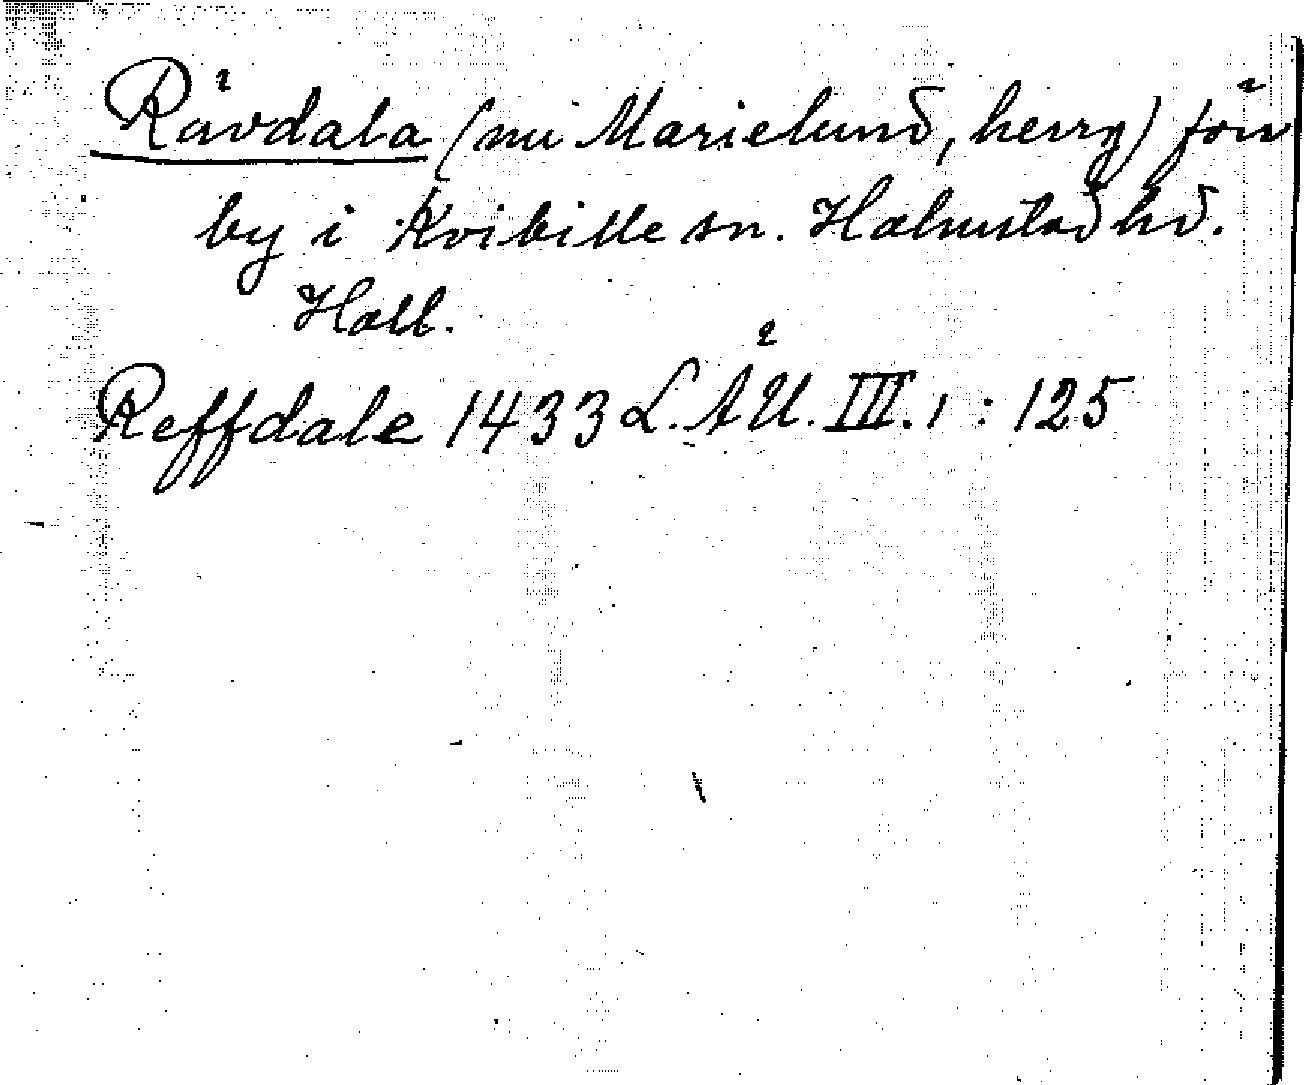 Rävdala (nu Marielund, herrg) förr
by i Kvibille sn. Halmstad hd.
Hall.
Reffdale 1433 L.ÄU. III.1 : 125